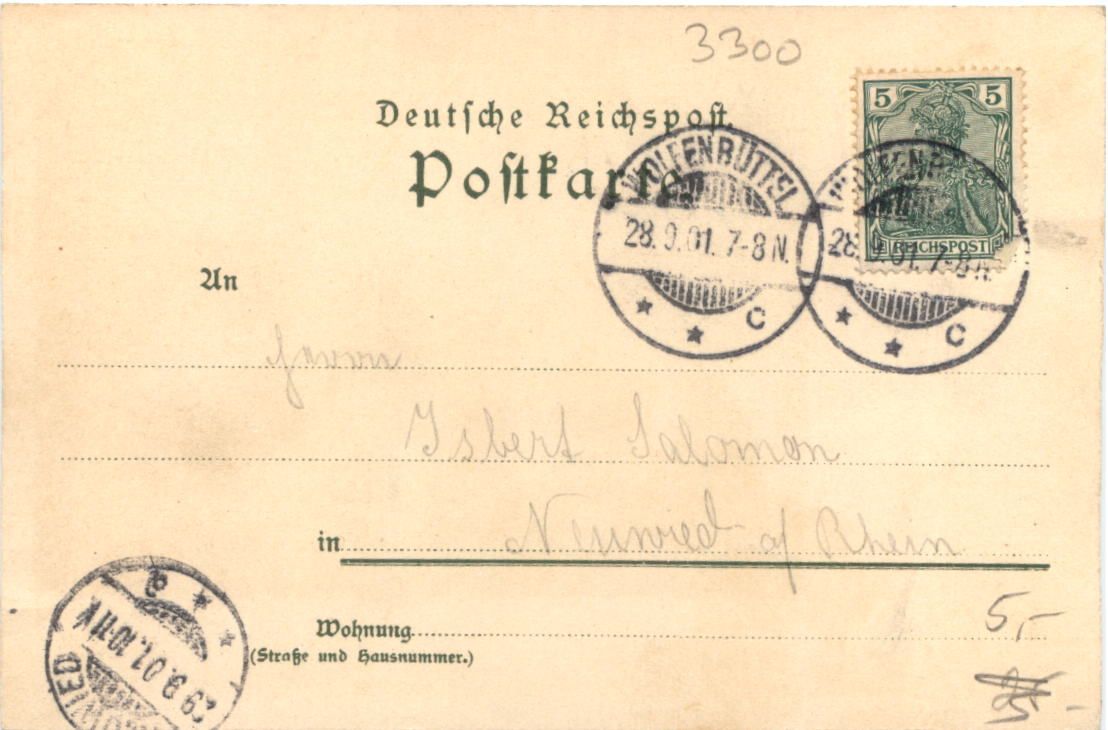 3300
Deutsche Reichspost.
Postkarte
5 5
REICHSPOST
WOLFENBÜTTEL
28.9.01. 7-8 N.
* * C
28.9.01. 7-8 N.
* * C
An
Herrn
Isbert Salomon
in Neuwied a/ Rhein
Wohnung
(Straße und Hausnummer.)
29.9.01. 10-11 V.
5,-